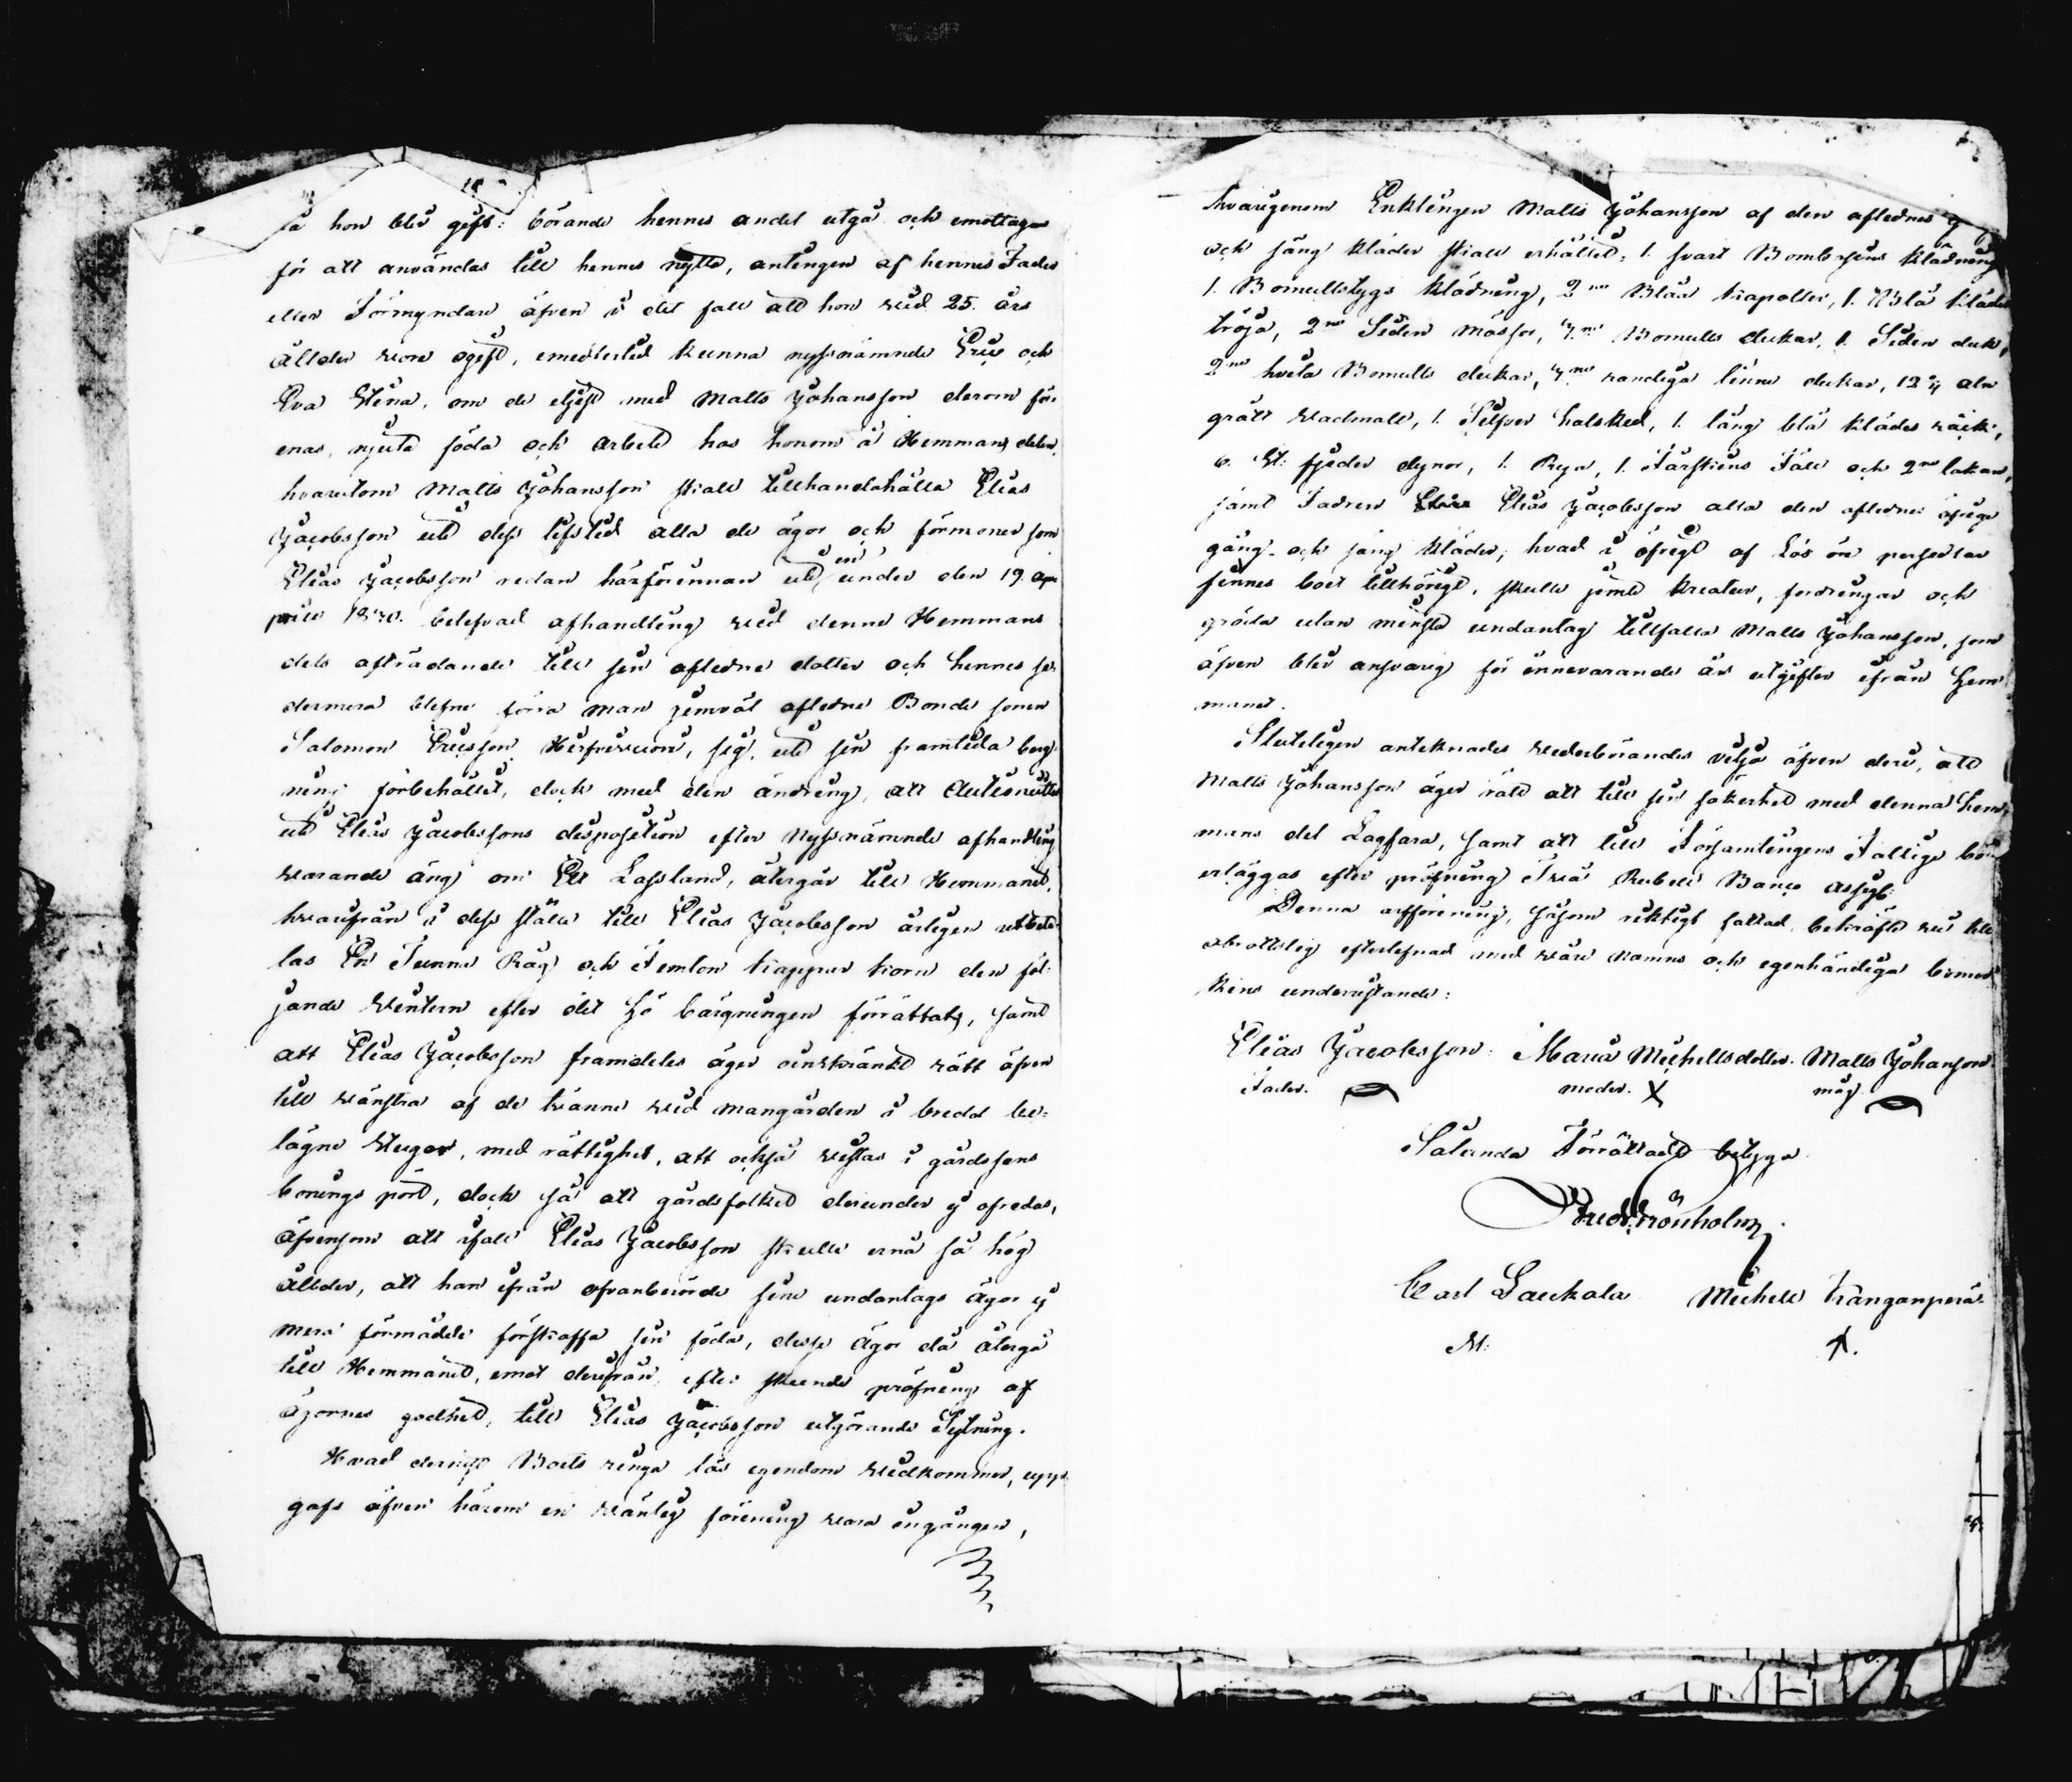 så hon blir gift: börande hennes andel utgå och emottagas
för att användas till hennes nytta, antingen af hennes Fader
eller Förmyndare äfven i det fall att hon vid 25. års
ållder vore ogift, emedlertid kunna nyssnämnde Eric och
Eva Stina, om de eljest med Matts Johansson derom för-
enas, njuta föda och arbete hos honom å Hemmans delen,
hvarutom Matts Johansson skall tillhandahålla Elias
Jacobsson uti dess lifstid alla de ägor och förmoner som
Elias Jacobsson redan härförinnan uti en under den 19. Ap-
prill 1840. belefvad afhandling vid denne Hemmans
dels afträdande till sin aflidne dotter och hennes se-
dermera blefne förra man jemväl aflidne Bonde sonen
Salomon Ericsson Hirsivuori, sig, uti sin framtida berg-
ning förbehållit, dock med den ändring, att
uti Elias Jacobssons disposition efter nyssnämnde afhandling
varande äng om Ett Lassland, återgår till Hemmanet,
hvarifrån i dess ställe till Elias Jacobsson årligen utbeta-
las En Tunna Råg och Femton kappar korn den föl-
jande Vintern efter det Hö bärgningen förättats, samt
att Elias Jacobsson framdeles äger oinskränkt rätt äfven
till vänstra af de tvänne vid mangården i bredd be-
lägne Stugor, med rättighet, att också vistas i gårdssens
bonings pört, dock så att gårdsfolket derunder ej ofredas,
äfvensom att ifall Elias Jacobsson skulle ernå så hög
ållder, att han ifrån ofvanberörde sine undantags ägor ej
mera förmådde förskaffa sin föda, desse ägor då återgå
till Hemmanet, emot derifrån, efter skeende pröfning af
ägornes godhet, till Elias Jacobsson utgörande Sytning.
Hvad deremot Boets ringa lös egendom vidkommer, upp-
gafs äfven härom en vänlig förening vara ingången,
hvarigenom Enklingen Matts Johansson af den aflednes g
och säng kläder skall erhållit: 1. svart Bombasins klädning
1. Bomullstygs klädning, 2ne Blåa kapotter, 1. Blå klädes
tröja, 2ne Siden mössor, 4ne Bomulls dukar, 1. Siden duk,
2ne hvita Bomulls dukar, 4ne randiga linne dukar, 12 aln
grått vadmall, 1. Silfver halsked, 1. lång blå klädes råck,
6. St: fjeder dynor, 1. Rya, 1. Fårskins Fäll och 2ne lakan,
jämt Fadren Elias Jacobsson alla den aflednes öfriga
gång- och säng kläder; hvad i öfrigt af Lös öre persedlar
finnes boet tillhörigt, skulle jemte kreatur, fordringar och
gröda utan minsta undantag tillfalla Matts Johansson, som
äfven blir ansvarig för innevarande års utgifter ifrån Hem-
manet.
Sluteligen anteknades vederbörandes vilja äfven deri, att
Matts Johansson äger rätt att till sin säkerhet med denna Hem-
mans del Lagfara, samt att till Församlingens Fattige bör
erläggas efter pröfning Två Rubell Banco Assign:
Denna afförening, såsom riktigt fattad, bekräfte vi till
obrottslig efterlefnad med våra namns och egenhändiga bomär-
kens undersättande:
Elias Jacobsson. Maria Michellsdotter. Matts Johansson
Fader. moder. X måg
Sålunda Förrättadt betyga
Carl Laukala Michell Kangasperä
M: